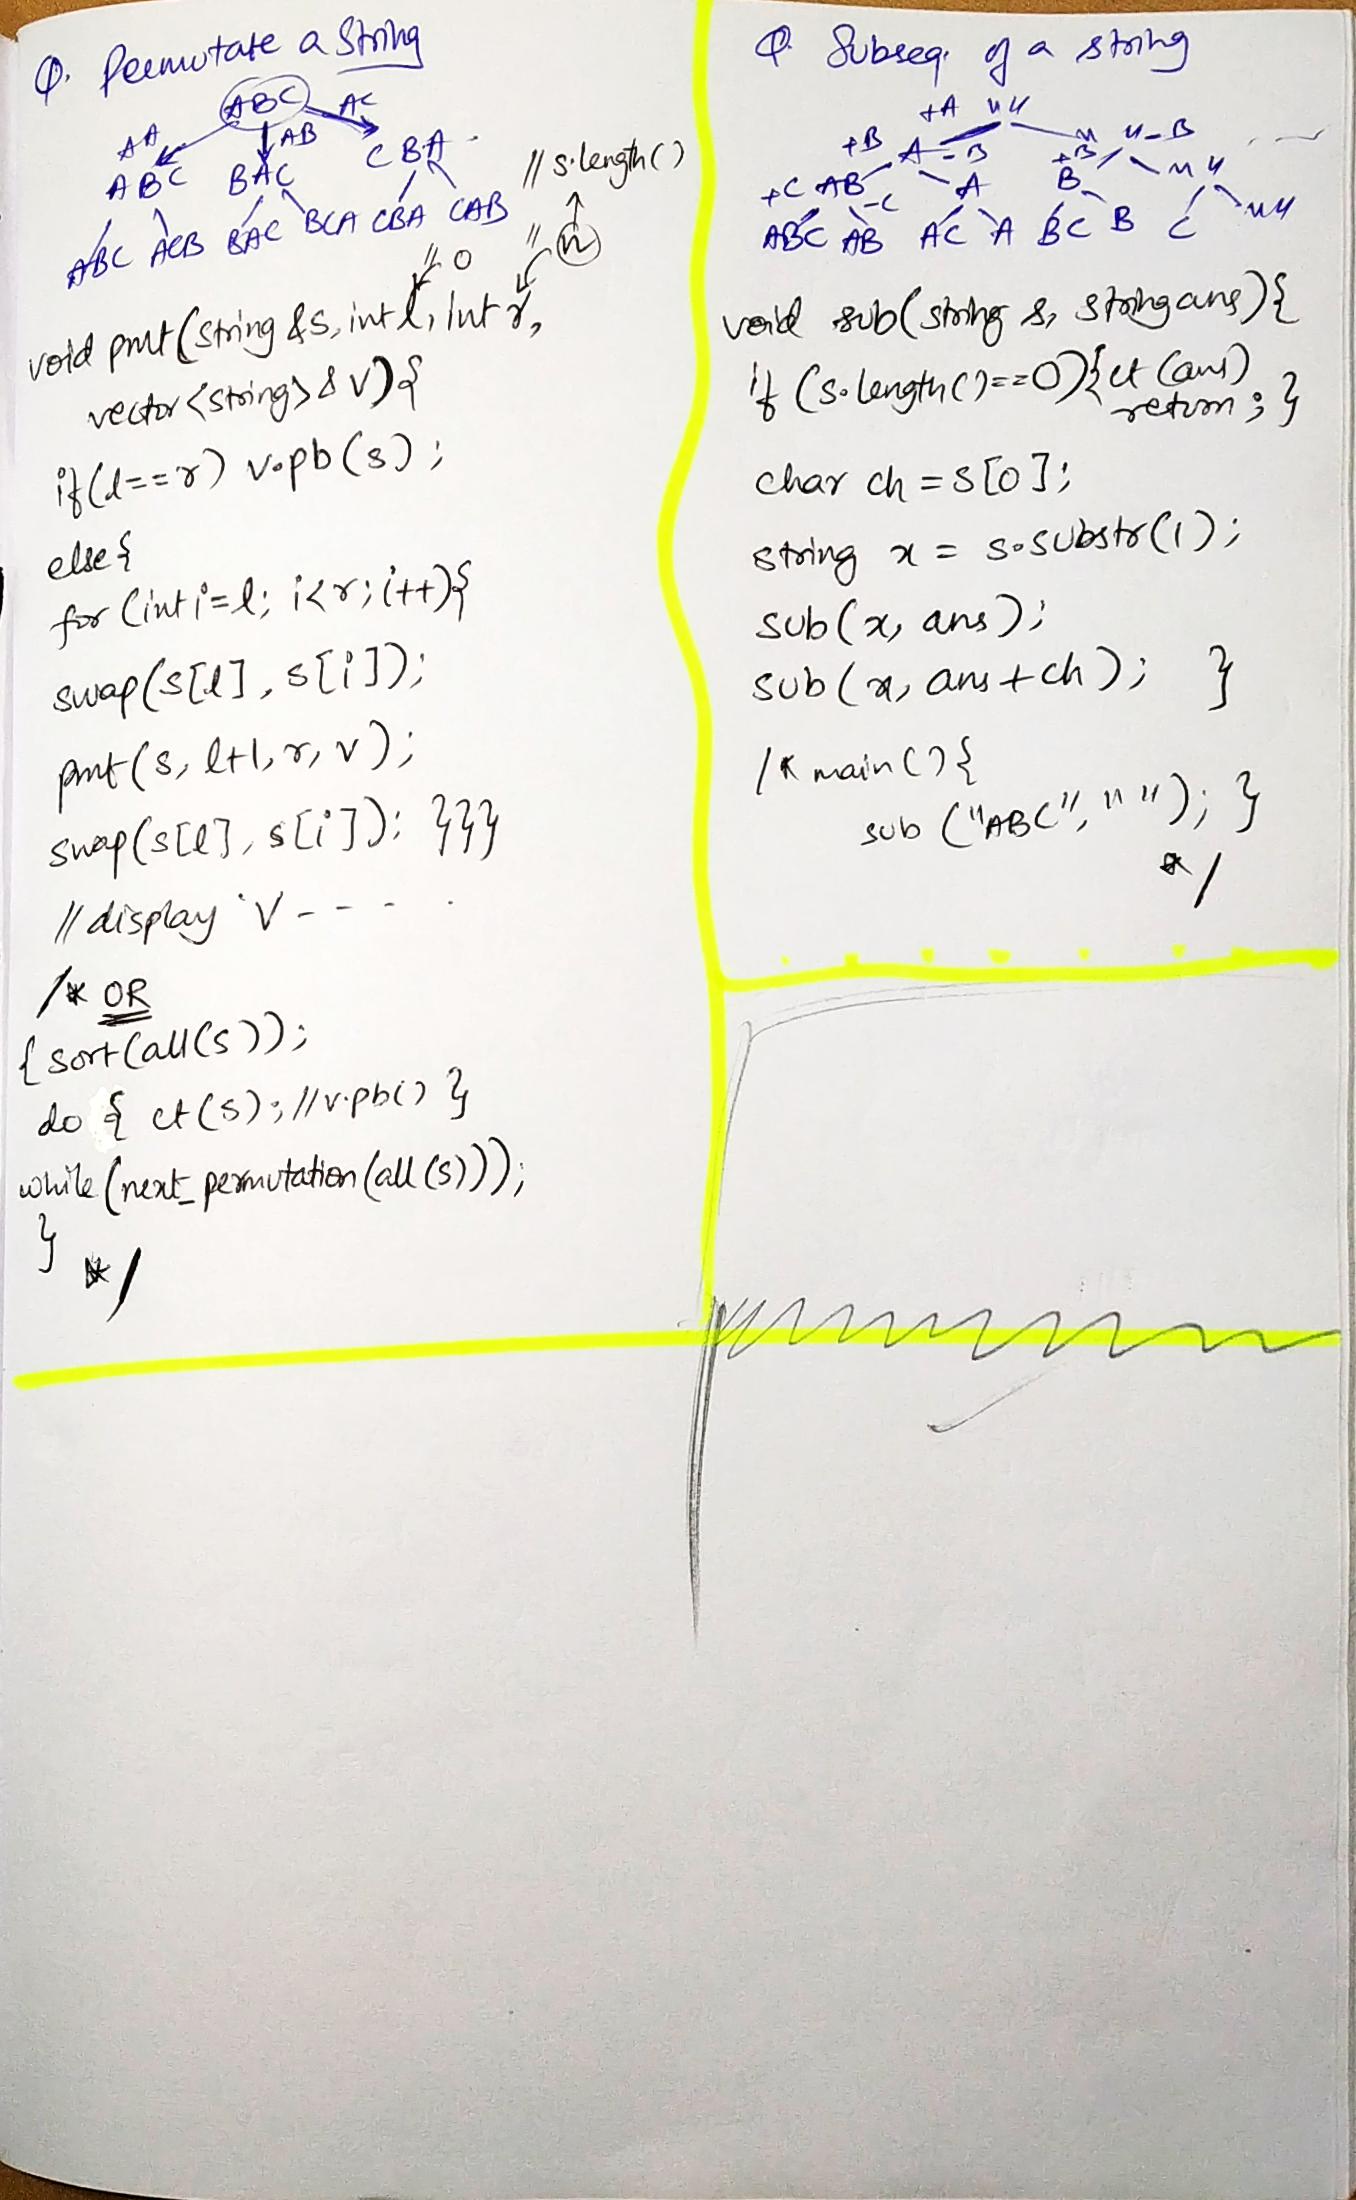 Q. Permutate a String
ABC
AA AB AC
ABC BAC CBA
ABC ACB BAC BCA CBA CAB
// s.length()
// 0 // n
void pmt(string &s, int l, int r,
vector<string> & v){
if(l==r) v.pb(s);
else{
for (int i=l; i<r; i++){
swap(s[l], s[i]);
pmt(s, l+1, r, v);
swap(s[l], s[i]); }}}
// display v - - - .
/* OR
{ sort(all(s));
do { ct(s); //v.pb() }
while (next_permutation(all(s)));
}
*/
Q. Subseq. of a string
+A " "
+B A -B +B " " -B
+C AB -C A B " "
ABC AB AC A BC B C " "
void sub(string s, string ans){
if (s.length()==0){ct(ans)
return; }
char ch = s[0];
string x = s.substr(1);
sub(x, ans);
sub(x, ans+ch); }
/* main(){
sub ("ABC", " "); }
*/